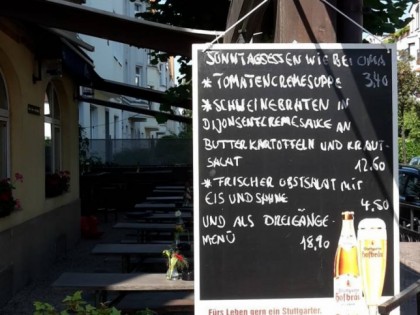 SONNTAGSESSEN WIE BEI OMA
* TOMATENCREMESUPPE 3,40
* SCHWEINEBRATEN IN
DIJONSENFCREMESAUCE AN
BUTTERKARTOFFELN UND KRAUT-
SALAT 12.60
* FRISCHER OBSTSALAT MIT
EIS UND SAHNE 4,50
UND ALS DREIGÄNGE-
MENÜ 18,90
Hofbräu
Hofbräu
Fürs Leben gern ein Stuttgarter.